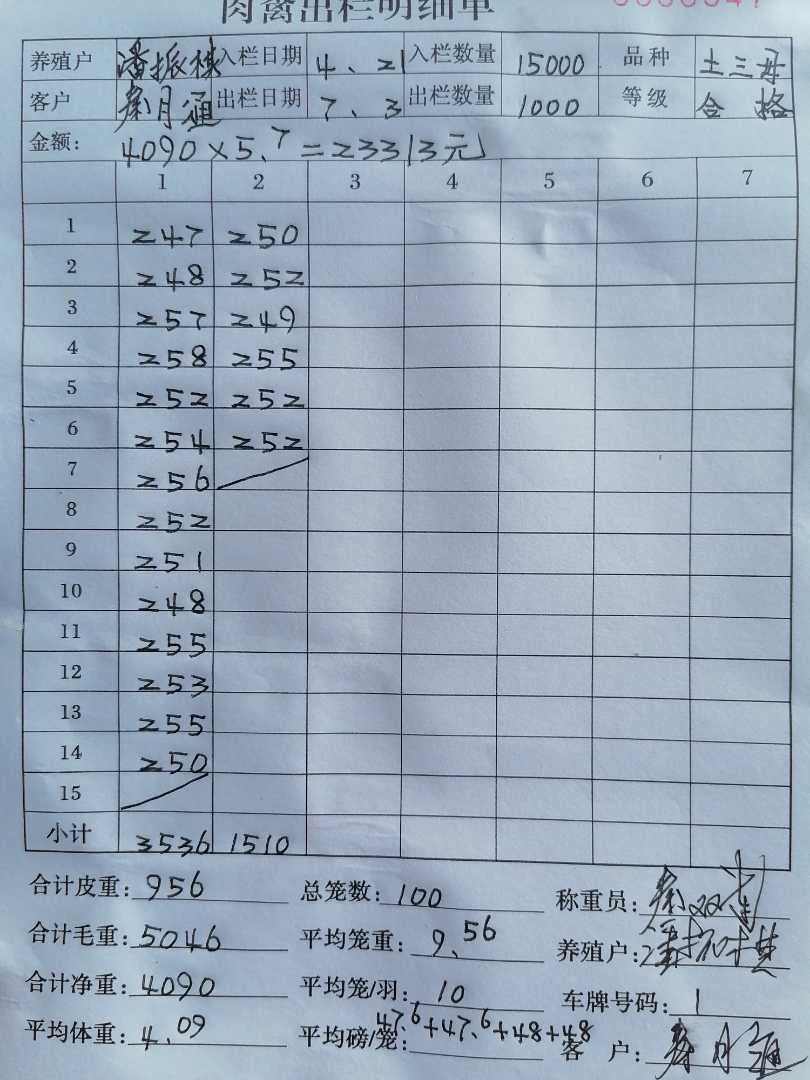 肉禽出栏明细单
养殖户 潘振栋 入栏日期 4、21 入栏数量 15000 品种 土三母
客户 秦月通 出栏日期 7、3 出栏数量 1000 等级 合格
金额: 4090×5.7=23313元
1 2 3 4 5 6 7
1 247 250
2 248 252
3 257 249
4 258 255
5 252 252
6 254 252
7 256
8 252
9 251
10 248
11 255
12 253
13 255
14 250
15
小计 3536 1510
合计皮重: 956 总笼数: 100 称重员:
合计毛重: 5046 平均笼重: 9.56 养殖户:
合计净重: 4090 平均笼/羽: 10 车牌号码: 1
平均体重: 4.09 平均磅/笼: 47.6+47.6+48+48 客 户: 秦月通